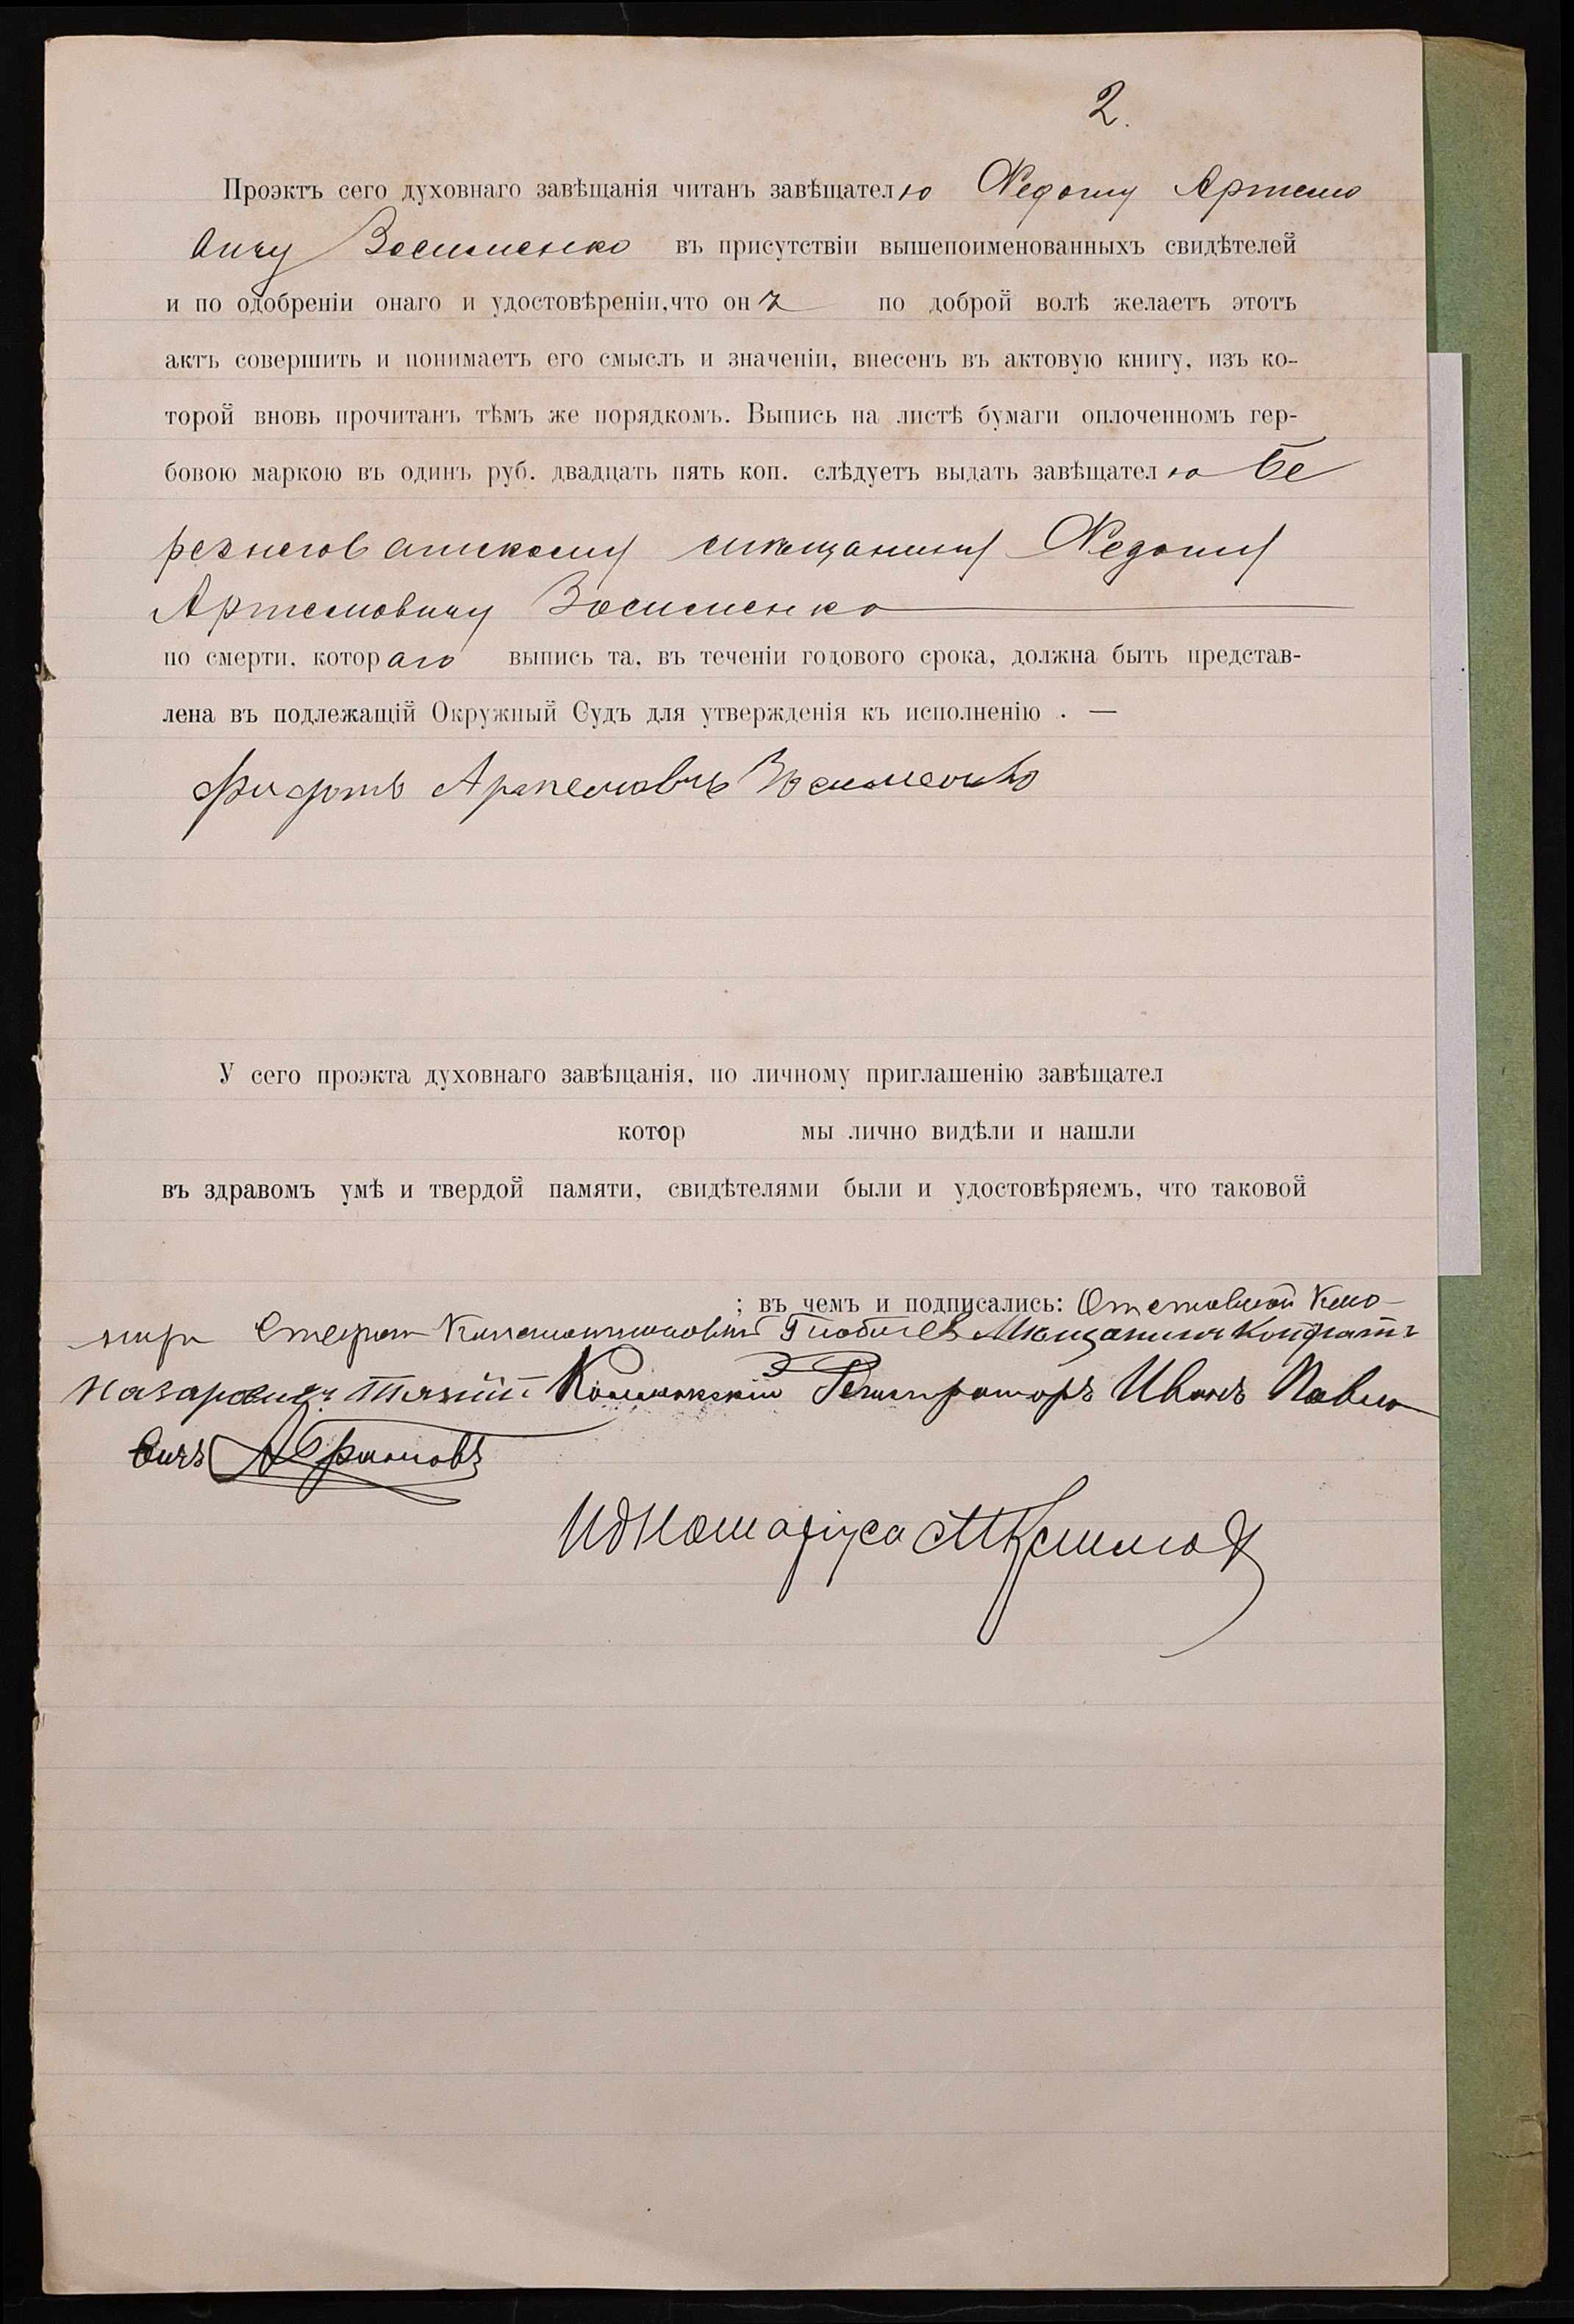 2.
Проэктъ сего духовнаго завѣщанія читанъ завѣщателю Ѳедоту Артемо
вичу Зосименко въ присутствіи вышепоименованныхъ свидѣтелей
и по одобреніи онаго и удостовѣреніи, что онъ по доброй волѣ желаетъ этотъ
актъ совершить и понимаетъ его смыслъ и значеніи, внесенъ въ актовую книгу, изъ ко-
торой вновь прочитанъ тѣмъ же порядкомъ. Выпись на листѣ бумаги оплоченномъ гер-
бовою маркою въ одинъ руб. двадцать пять коп. слѣдуетъ выдать завѣщателю Бе
резнеговатскому мѣщанину Ѳедоту
Артемовичу Зосименко
по смерти, котораго выпись та, въ теченіи годового срока, должна быть представ-
лена въ подлежащій Окружный Судъ для утвержденія къ исполненію . —
Артемовичъ Зосименко
У сего проэкта духовнаго завѣщанія, по личному приглашенію завѣщател
котор мы лично видѣли и нашли
въ здравомъ умѣ и твердой памяти, свидѣтелями были и удостовѣряемъ, что таковой
; въ чемъ и подписались: Отставной
Константиновичъ Мѣщанинъ Кондратъ
Назаровичъ Регистраторъ Иванъ Павло
вичъ
ИД Нотаріуса